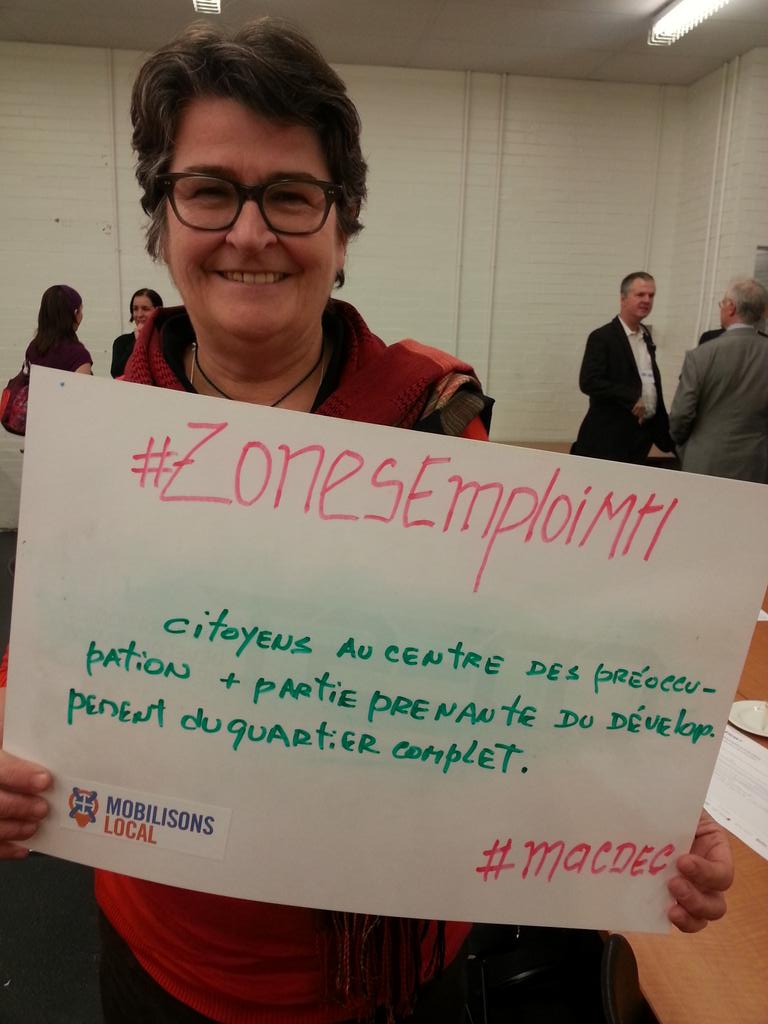 #ZonesEmploiMtl
citoyens au centre des préoccu-
pation + partie prenante du dévelop.
pement du quartier complet.
MOBILISONS
LOCAL
#macDEC